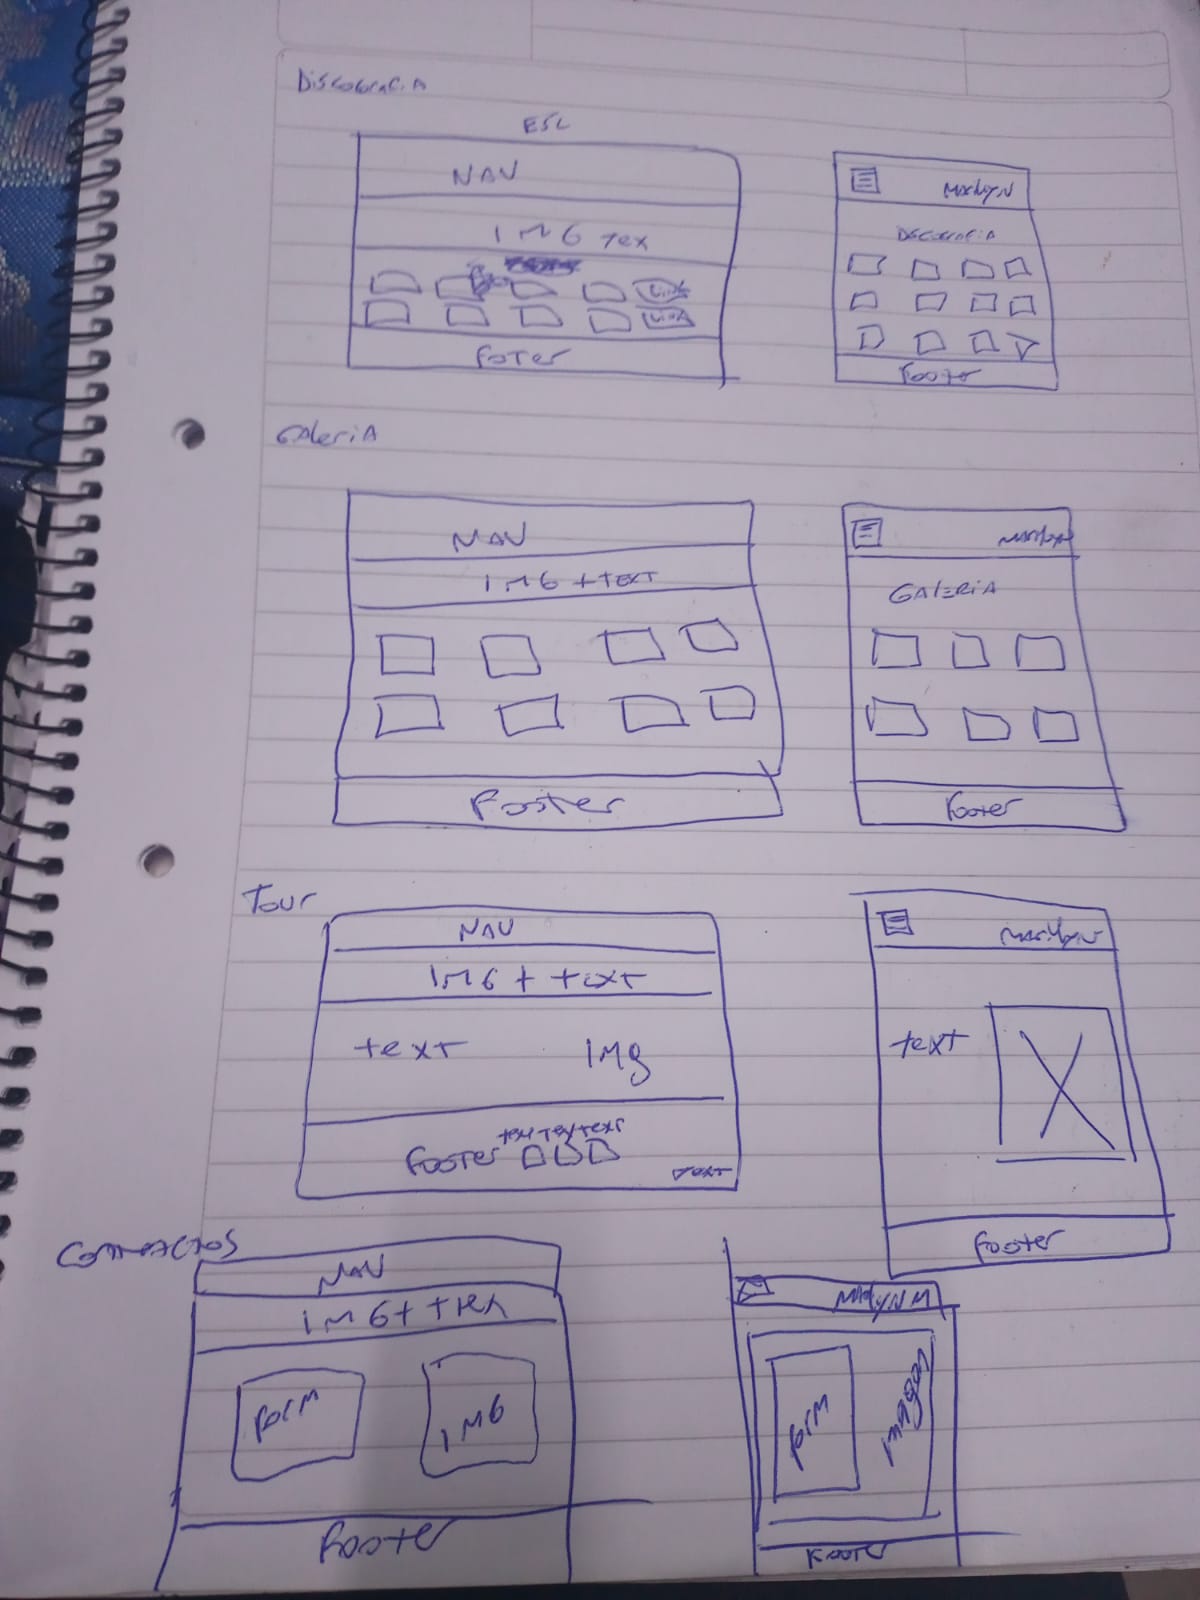 Discografia
ESC
NAV
IMG Tex
Link
Link
Foter
Marilyn
Discografia
Footer
Galeria
NAV
IMG + TEXT
Footer
Marilyn
GALERIA
Footer
Tour
NAV
IMG + text
text img
text text text
Footer
text
Marilyn
text
Footer
Contactos
NAV
IMG + tex
Form
IMG
Footer
Marilyn M
Form
Footer